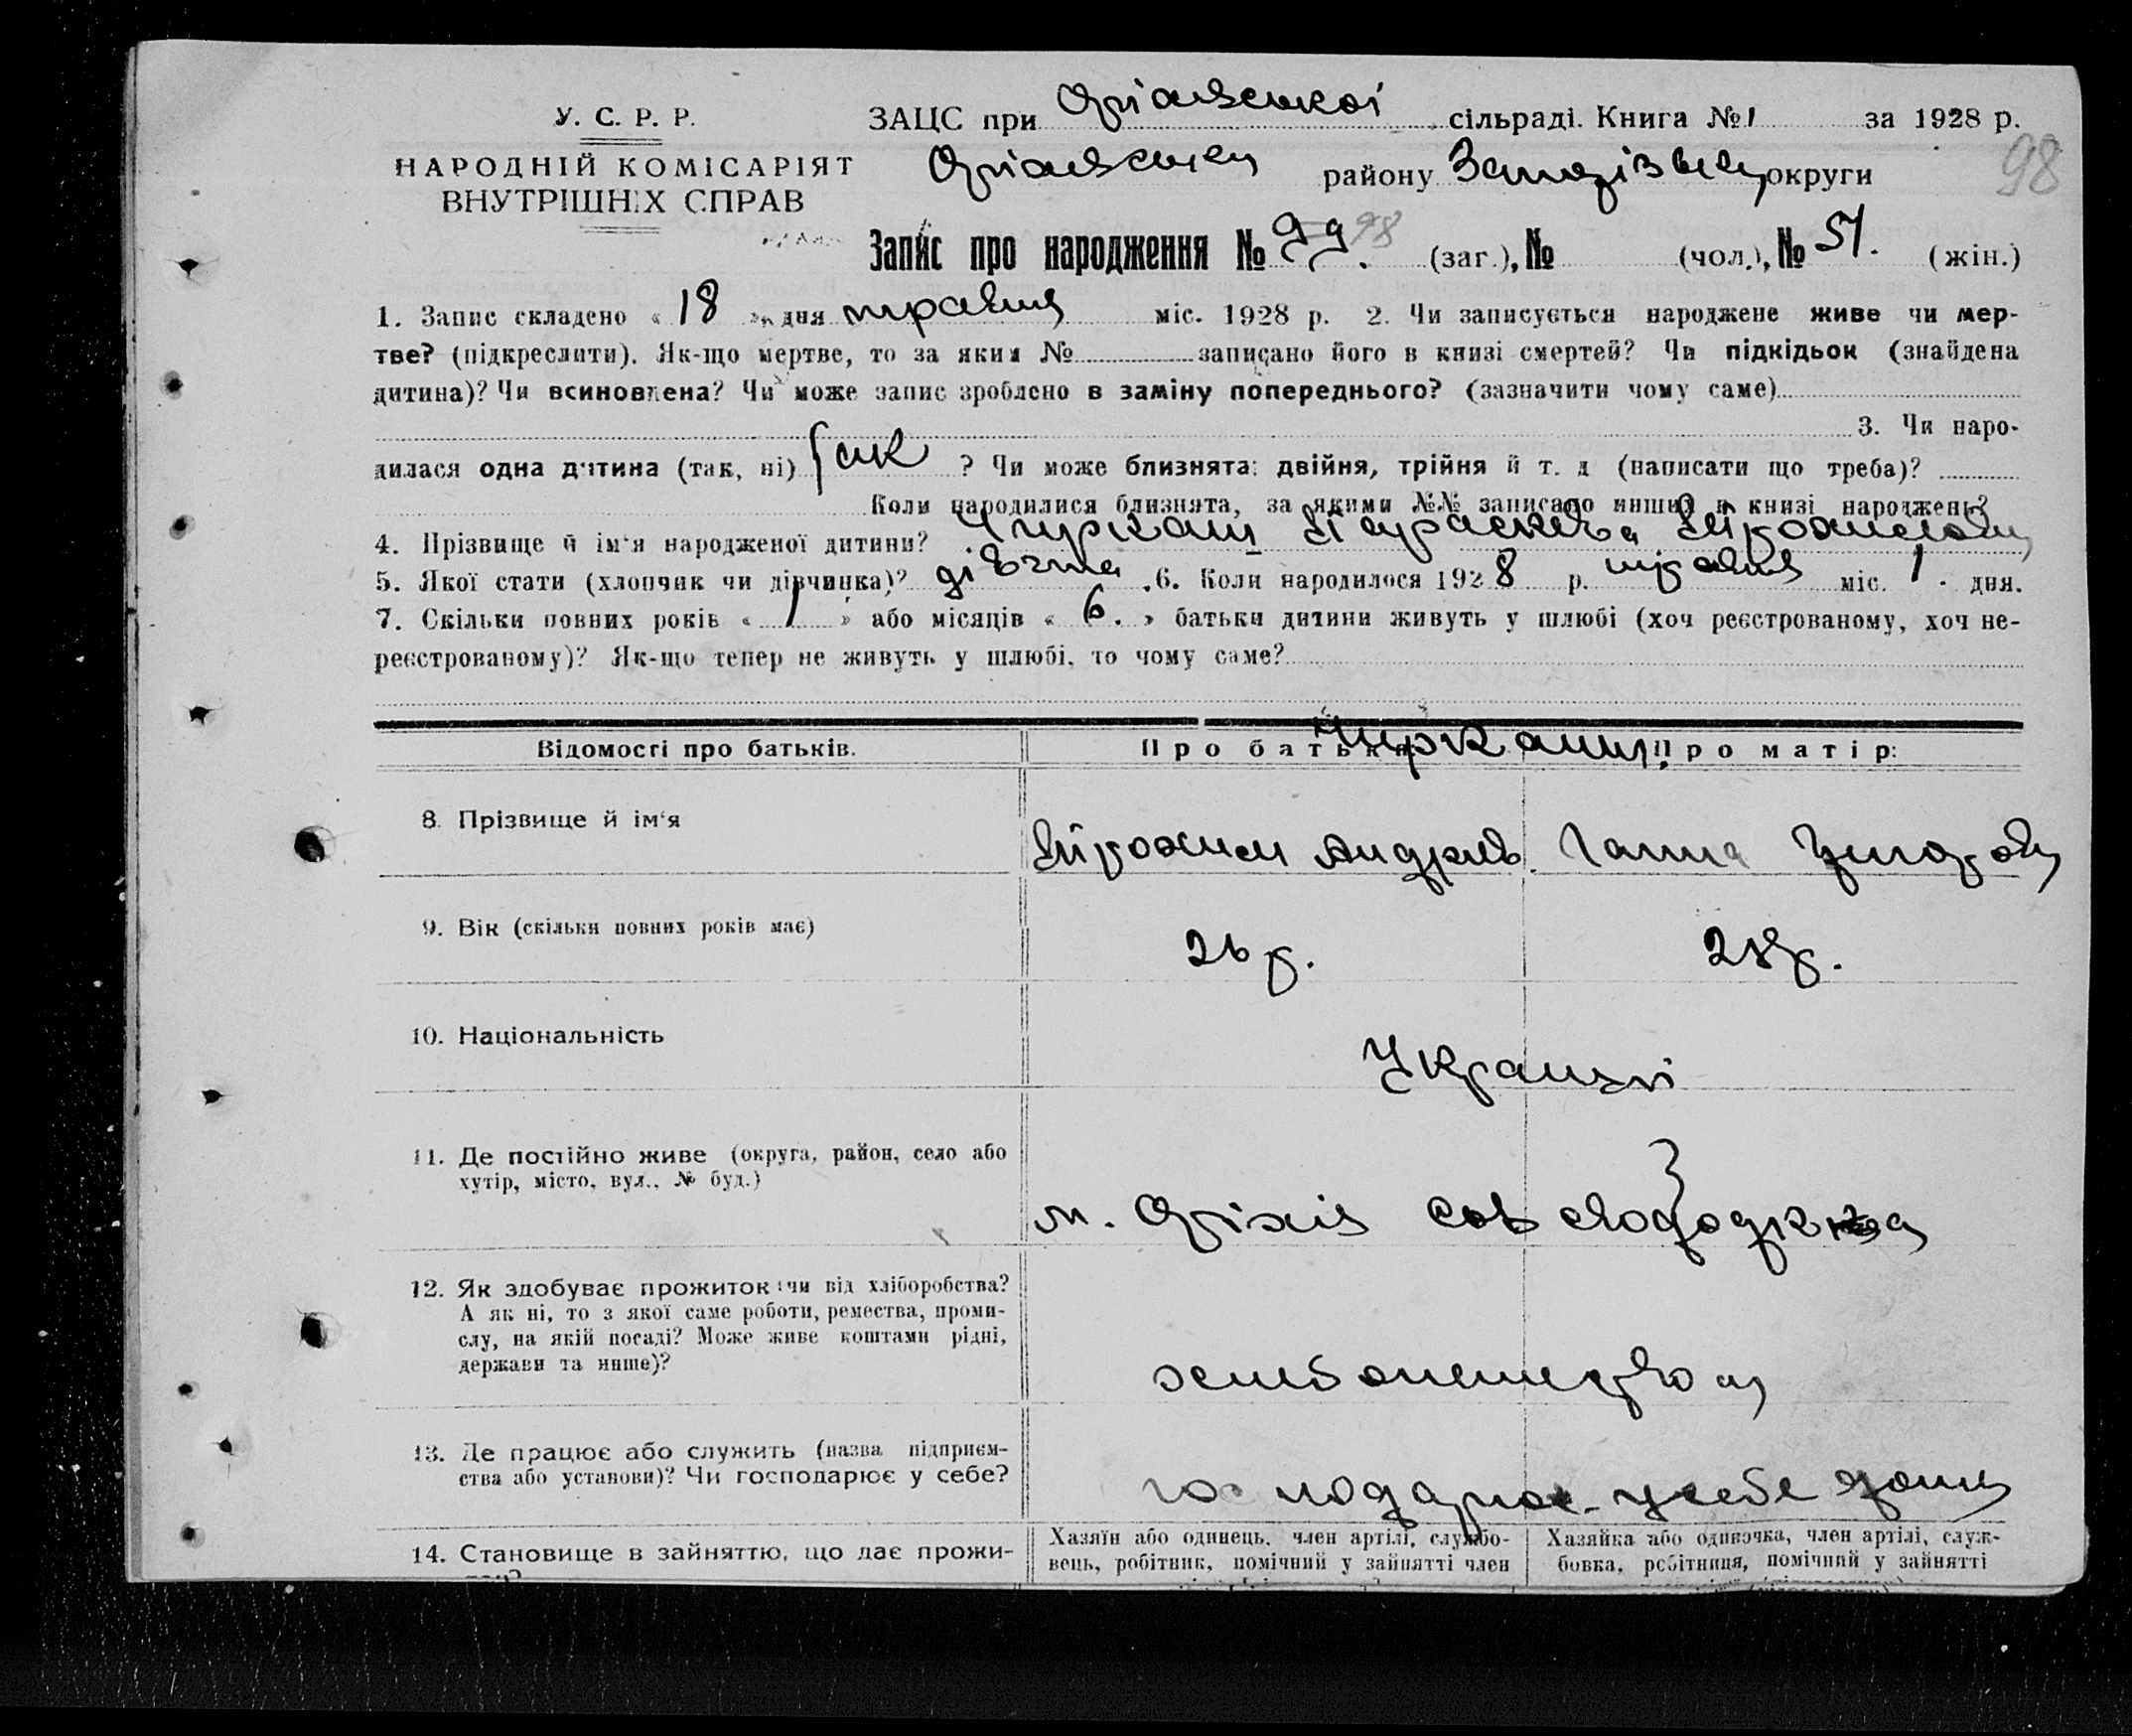 У. С. Р. Р.
НАРОДНІЙ КОМІСАРІЯТ
ВНУТРІШНІХ СПРАВ
ЗАЦС при Оріхівської сільраді. Книга № 1 за 1928 р.
Оріхівськ району Запорізьк округи
98
Запис про народження № 99. 98 (заг.), № (чол.), № 51. (жін.)
1. Запис складено « 18 » дня травня міс. 1928 р. 2. Чи записується народжене живе чи мер-
тве? (підкреслити). Як-що мертве, то за яким № записано його в книзі смертей? Чи підкідьок (знайдена
дитина)? Чи всиновлена? Чи може запис зроблено в заміну попереднього? (зазначити чому саме)
3. Чи наро-
дилася одна дитина (так, ні) так ? Чи може близнята: двійня, трійня й т. д (написати що треба)?
Коли народилися близнята, за якими №№ записано инших в книзі народжень?
4. Прізвище й ім'я народженої дитини? Параскева
5. Якої стати (хлопчик чи дівчинка)? дівчина 6. Коли народилося 1928 р. травня міс. 1 дня.
7. Скільки повних років « 1 » або місяців « 6. » батьки дитини живуть у шлюбі (хоч реєстрованому, хоч не-
реєстрованому)? Як-що тепер не живуть у шлюбі, то чому саме?
Відомості про батьків. Про батька: Про матір:
8. Прізвище й ім'я Ганна
9. Вік (скільки повних років має) 26 р. 28 р.
10. Національність Українці
11. Де постійно живе (округа, район, село або
хутір, місто, вул., № буд.)
м. Оріхів
12. Як здобуває прожиток: чи від хліборобства?
А як ні, то з якої саме роботи, ремества, проми-
слу, на якій посаді? Може живе коштами рідні,
держави та инше)?
13. Де працює або служить (назва підприєм-
ства або установи)? Чи господарює у себе?
господарює у себе дома
14. Становище в зайняттю, що дає прожи-
Хазяїн або одинець, член артілі, службо-
вець, робітник, помічний у зайнятті член
Хазяйка або одиночка, член артілі, служ-
бовка, робітниця, помічний у зайнятті